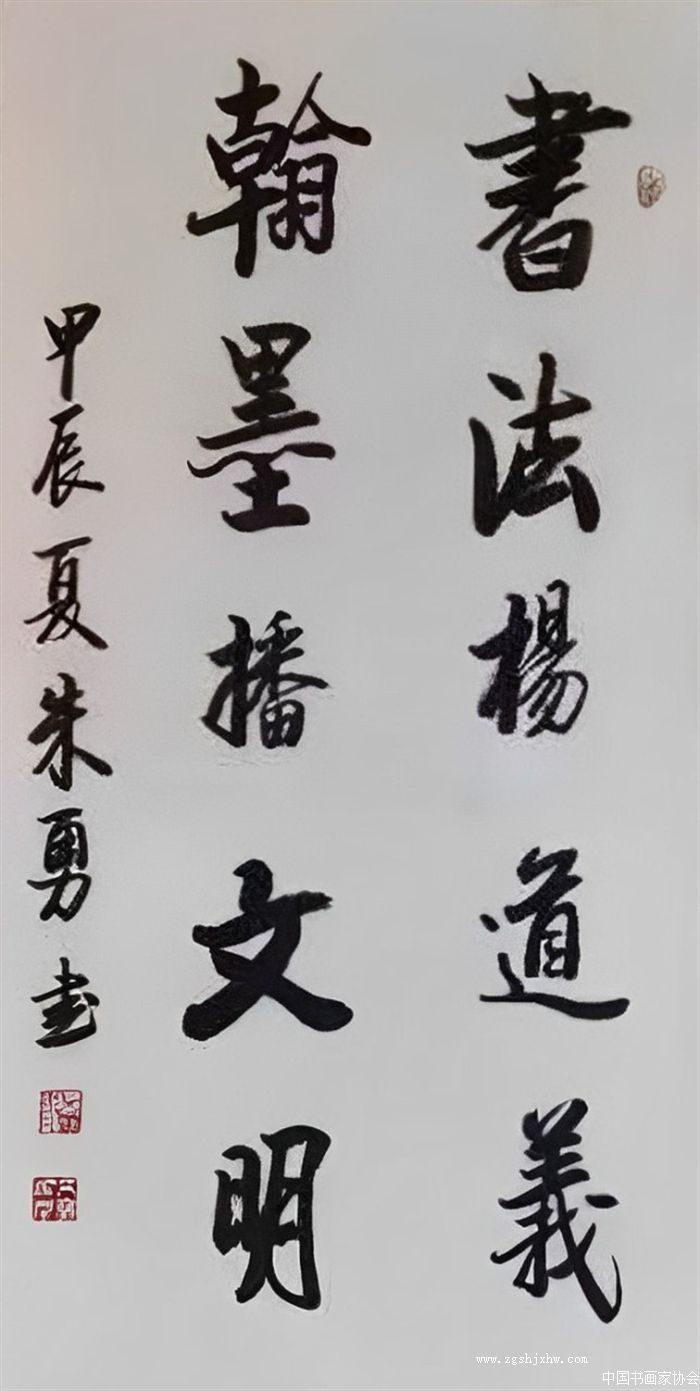 書法楊道義
翰墨播文明
甲辰夏朱勇书
www.zgshjxhw.com
中国书画家协会